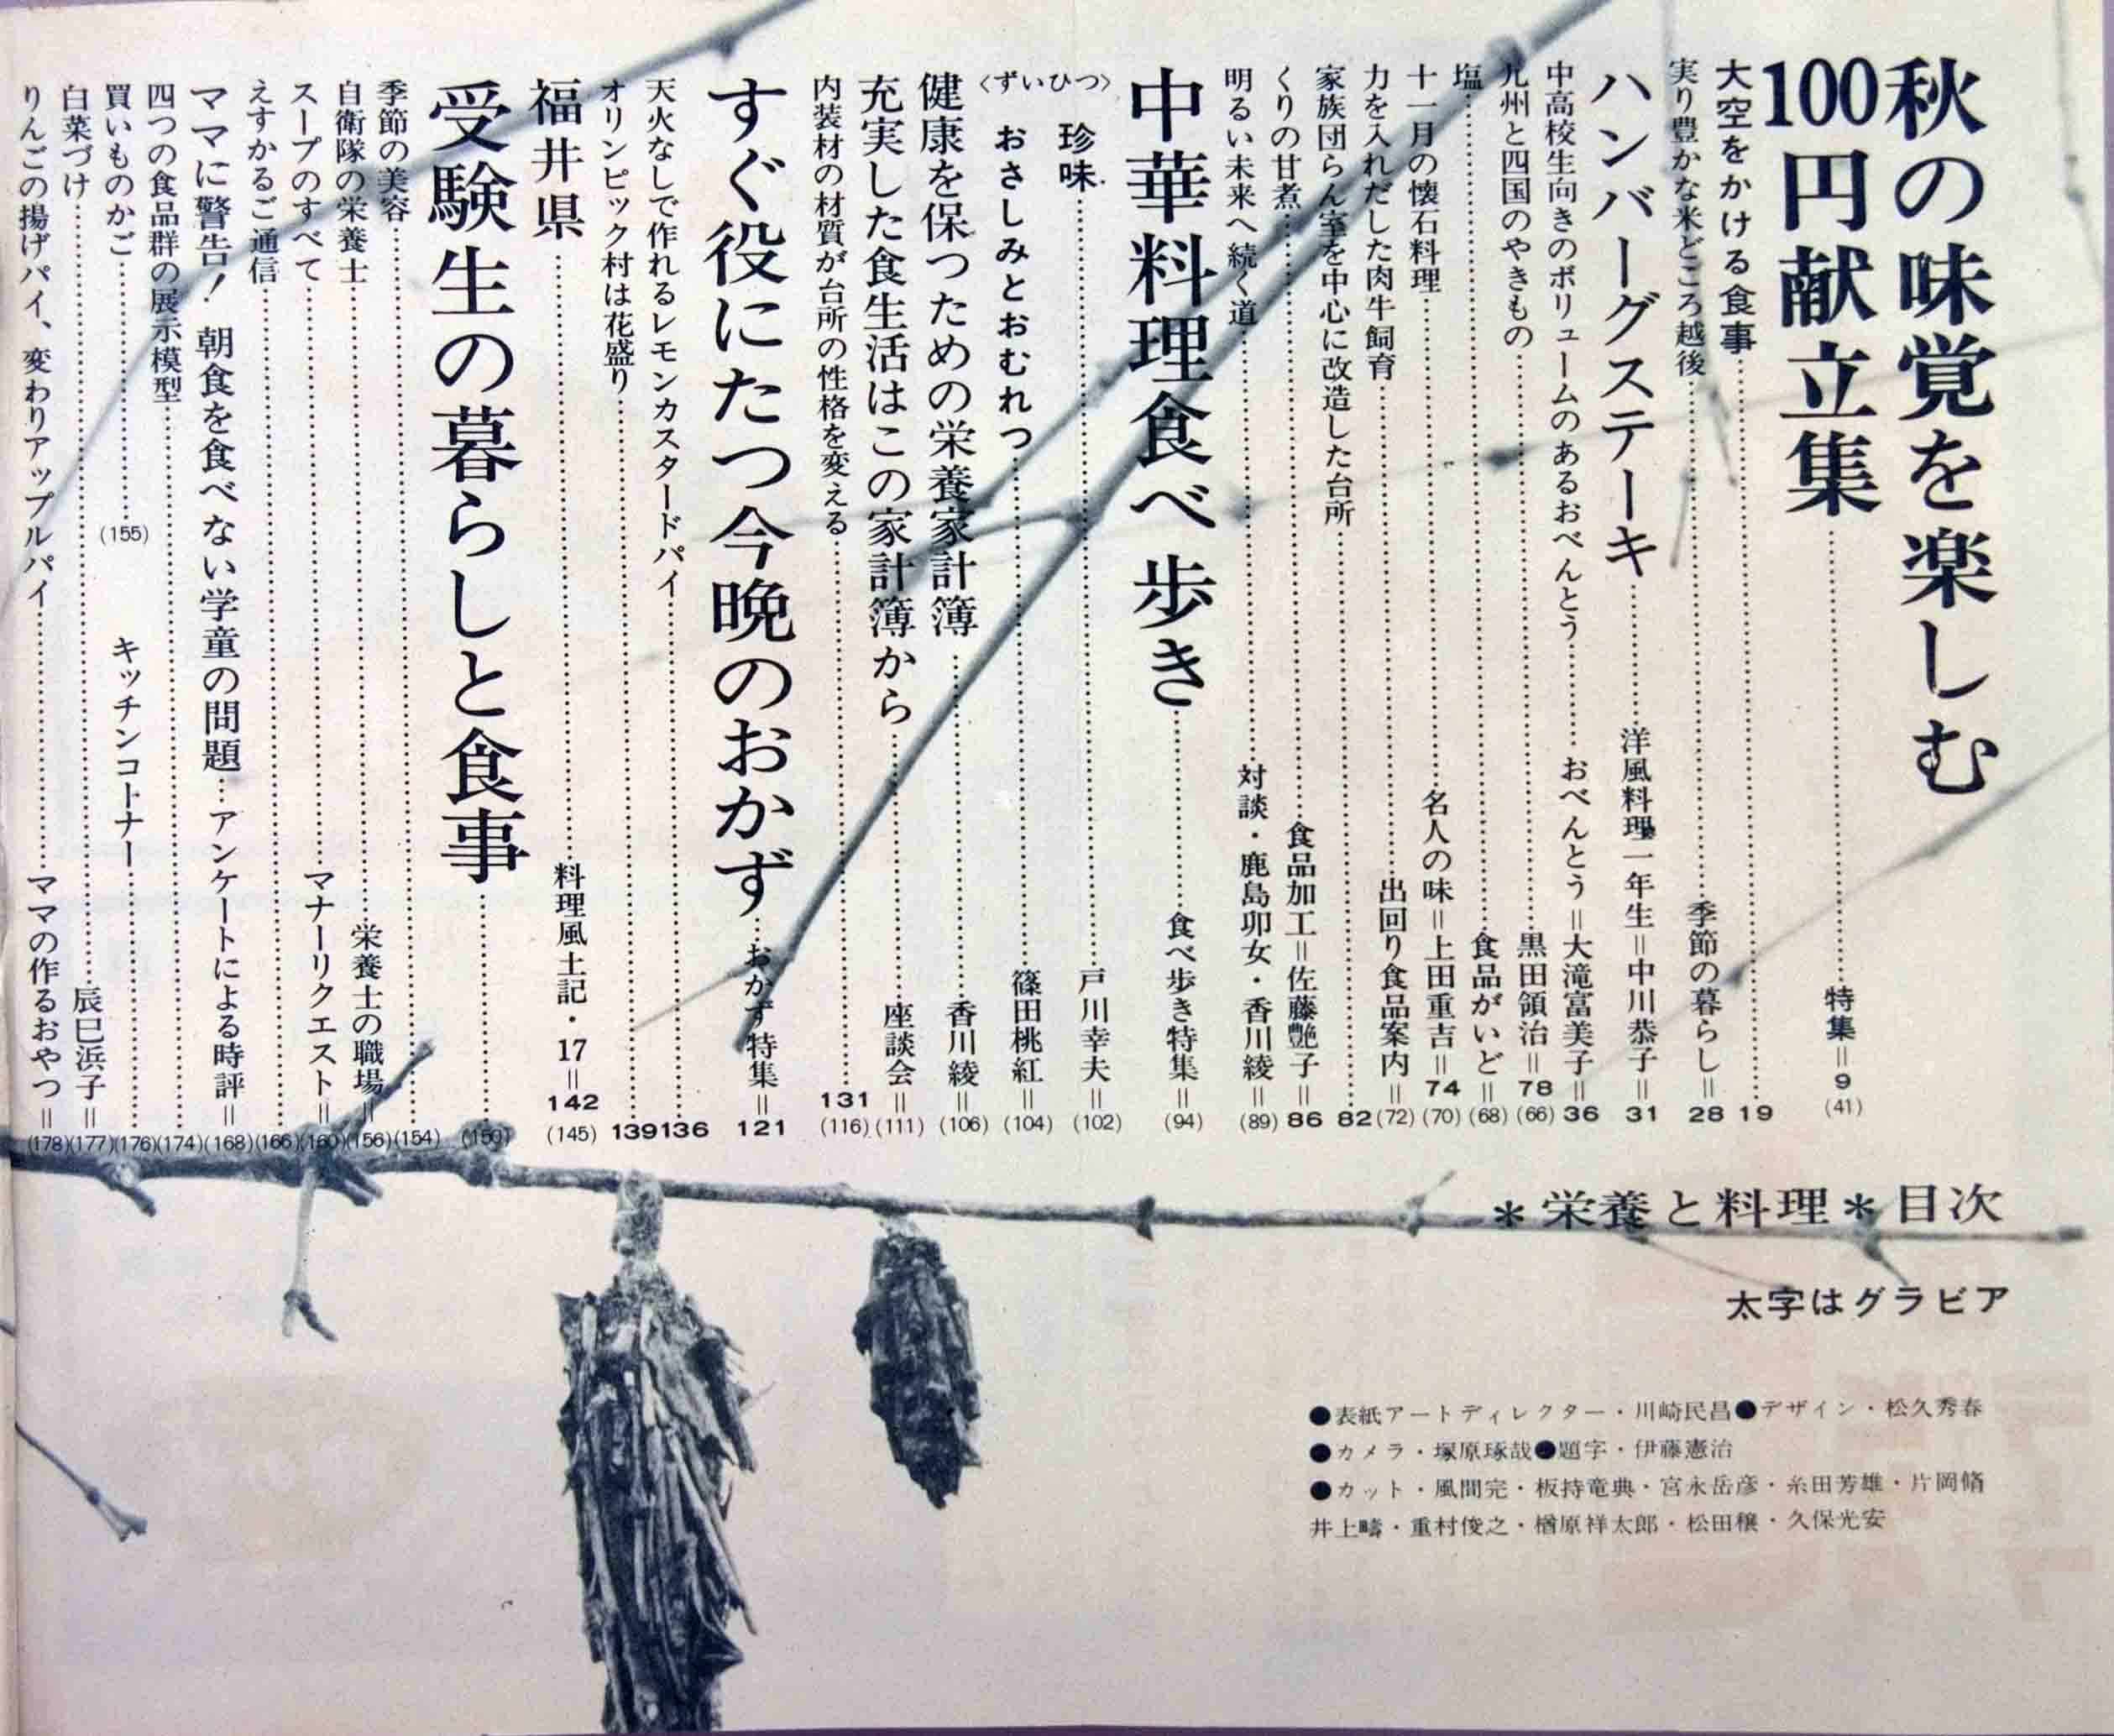 秋の味覚を楽しむ
100円献立集……特集＝9
(41)
大空をかける食事……19
実り豊かな米どころ越後……季節の暮らし＝28
ハンバーグステーキ……洋風料理一年生＝中川恭子＝31
中高校生向きのボリュームのあるおべんとう……おべんとう＝大滝富美子＝36
九州と四国のやきもの……黒田領治＝78
(66)
塩……食品がいど＝(68)
十一月の懐石料理……名人の味＝上田重吉＝74
(70)
力を入れだした肉牛飼育……出回り食品案内＝(72)
家族団らん室を中心に改造した台所……82
くりの甘煮……食品加工＝佐藤艶子＝86
明るい未来へ続く道……対談・鹿島卯女・香川綾＝(89)
中華料理食べ歩き……食べ歩き特集＝(94)
〈ずいひつ〉
珍味……戸川幸夫＝(102)
おさしみとおむれつ……篠田桃紅＝(104)
健康を保つための栄養家計簿……香川綾＝(106)
充実した食生活はこの家計簿から……座談会＝(111)
内装材の材質が台所の性格を変える……131
(116)
すぐ役にたつ今晩のおかず……おかず特集＝121
天火なしで作れるレモンカスタードパイ……136
オリンピック村は花盛り……139
福井県……料理風土記・17＝142
(145)
受験生の暮らしと食事……(150)
季節の美容……(154)
自衛隊の栄養士……栄養士の職場＝(156)
スープのすべて……マナーリクエスト＝(160)
えすかるご通信……(166)
ママに警告！ 朝食を食べない学童の問題…アンケートによる時評＝(168)
四つの食品群の展示模型……(174)
買いものかご……(155)
キッチンコーナー……(176)
白菜づけ……辰巳浜子＝(177)
りんごの揚げパイ、変わりアップルパイ……ママの作るおやつ＝(178)
＊栄養と料理＊目次
太字はグラビア
●表紙アートディレクター・川崎民昌●デザイン・松久秀春
●カメラ・塚原琢哉●題字・伊藤憲治
●カット・風間完・板持竜典・宮永岳彦・糸田芳雄・片岡脩
井上疇・重村俊之・楢原祥太郎・松田穣・久保光安